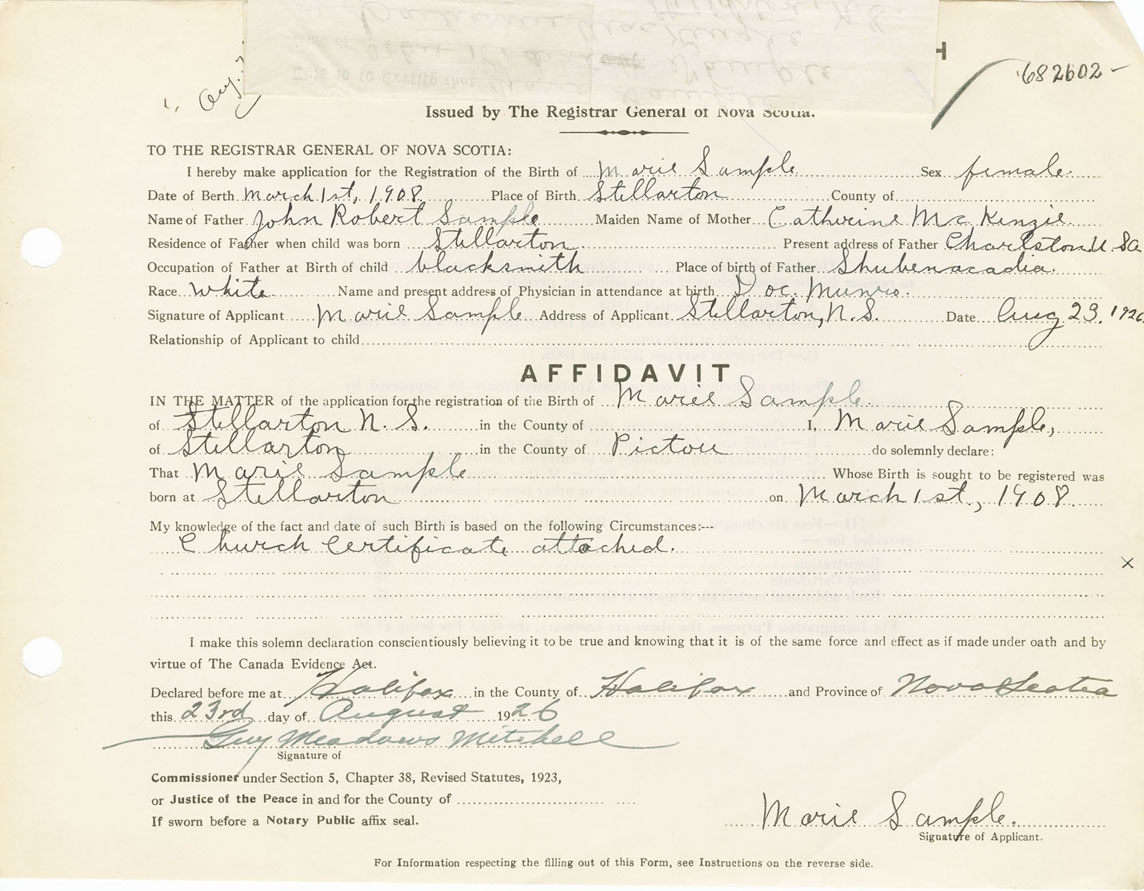 H
682602-
Aug.
Issued by The Registrar General of Nova Scotia.
TO THE REGISTRAR GENERAL OF NOVA SCOTIA:
I hereby make application for the Registration of the Birth of Marie Sample Sex female.
Date of Berth March 1st, 1908 Place of Birth Stellarton County of
Name of Father John Robert Sample Maiden Name of Mother Catherine McKenzie
Residence of Father when child was born Stellarton Present address of Father Charlston U. Sa
Occupation of Father at Birth of child blacksmith Place of birth of Father Shubenacadia.
Race white Name and present address of Physician in attendance at birth Doc. Munro.
Signature of Applicant Marie Sample Address of Applicant Stellarton, N.S. Date Aug 23, 1926
Relationship of Applicant to child
AFFIDAVIT
IN THE MATTER of the application for the registration of the Birth of Marie Sample
of Stellarton N.S. in the County of I, Marie Sample,
of Stellarton in the County of Pictou do solemnly declare:
That Marie Sample Whose Birth is sought to be registered was
born at Stellarton on March 1st, 1908.
My knowledge of the fact and date of such Birth is based on the following Circumstances:---
Church Certificate attached.
x
I make this solemn declaration conscientiously believing it to be true and knowing that it is of the same force and effect as if made under oath and by
virtue of The Canada Evidence Act.
Declared before me at Halifax in the County of Halifax and Province of Nova Scotia
this 23rd day of August 1926
Guy Meadows Mitchell
Signature of
Commissioner under Section 5, Chapter 38, Revised Statutes, 1923,
or Justice of the Peace in and for the County of
If sworn before a Notary Public affix seal.
Marie Sample.
Signature of Applicant.
For Information respecting the filling out of this Form, see Instructions on the reverse side.